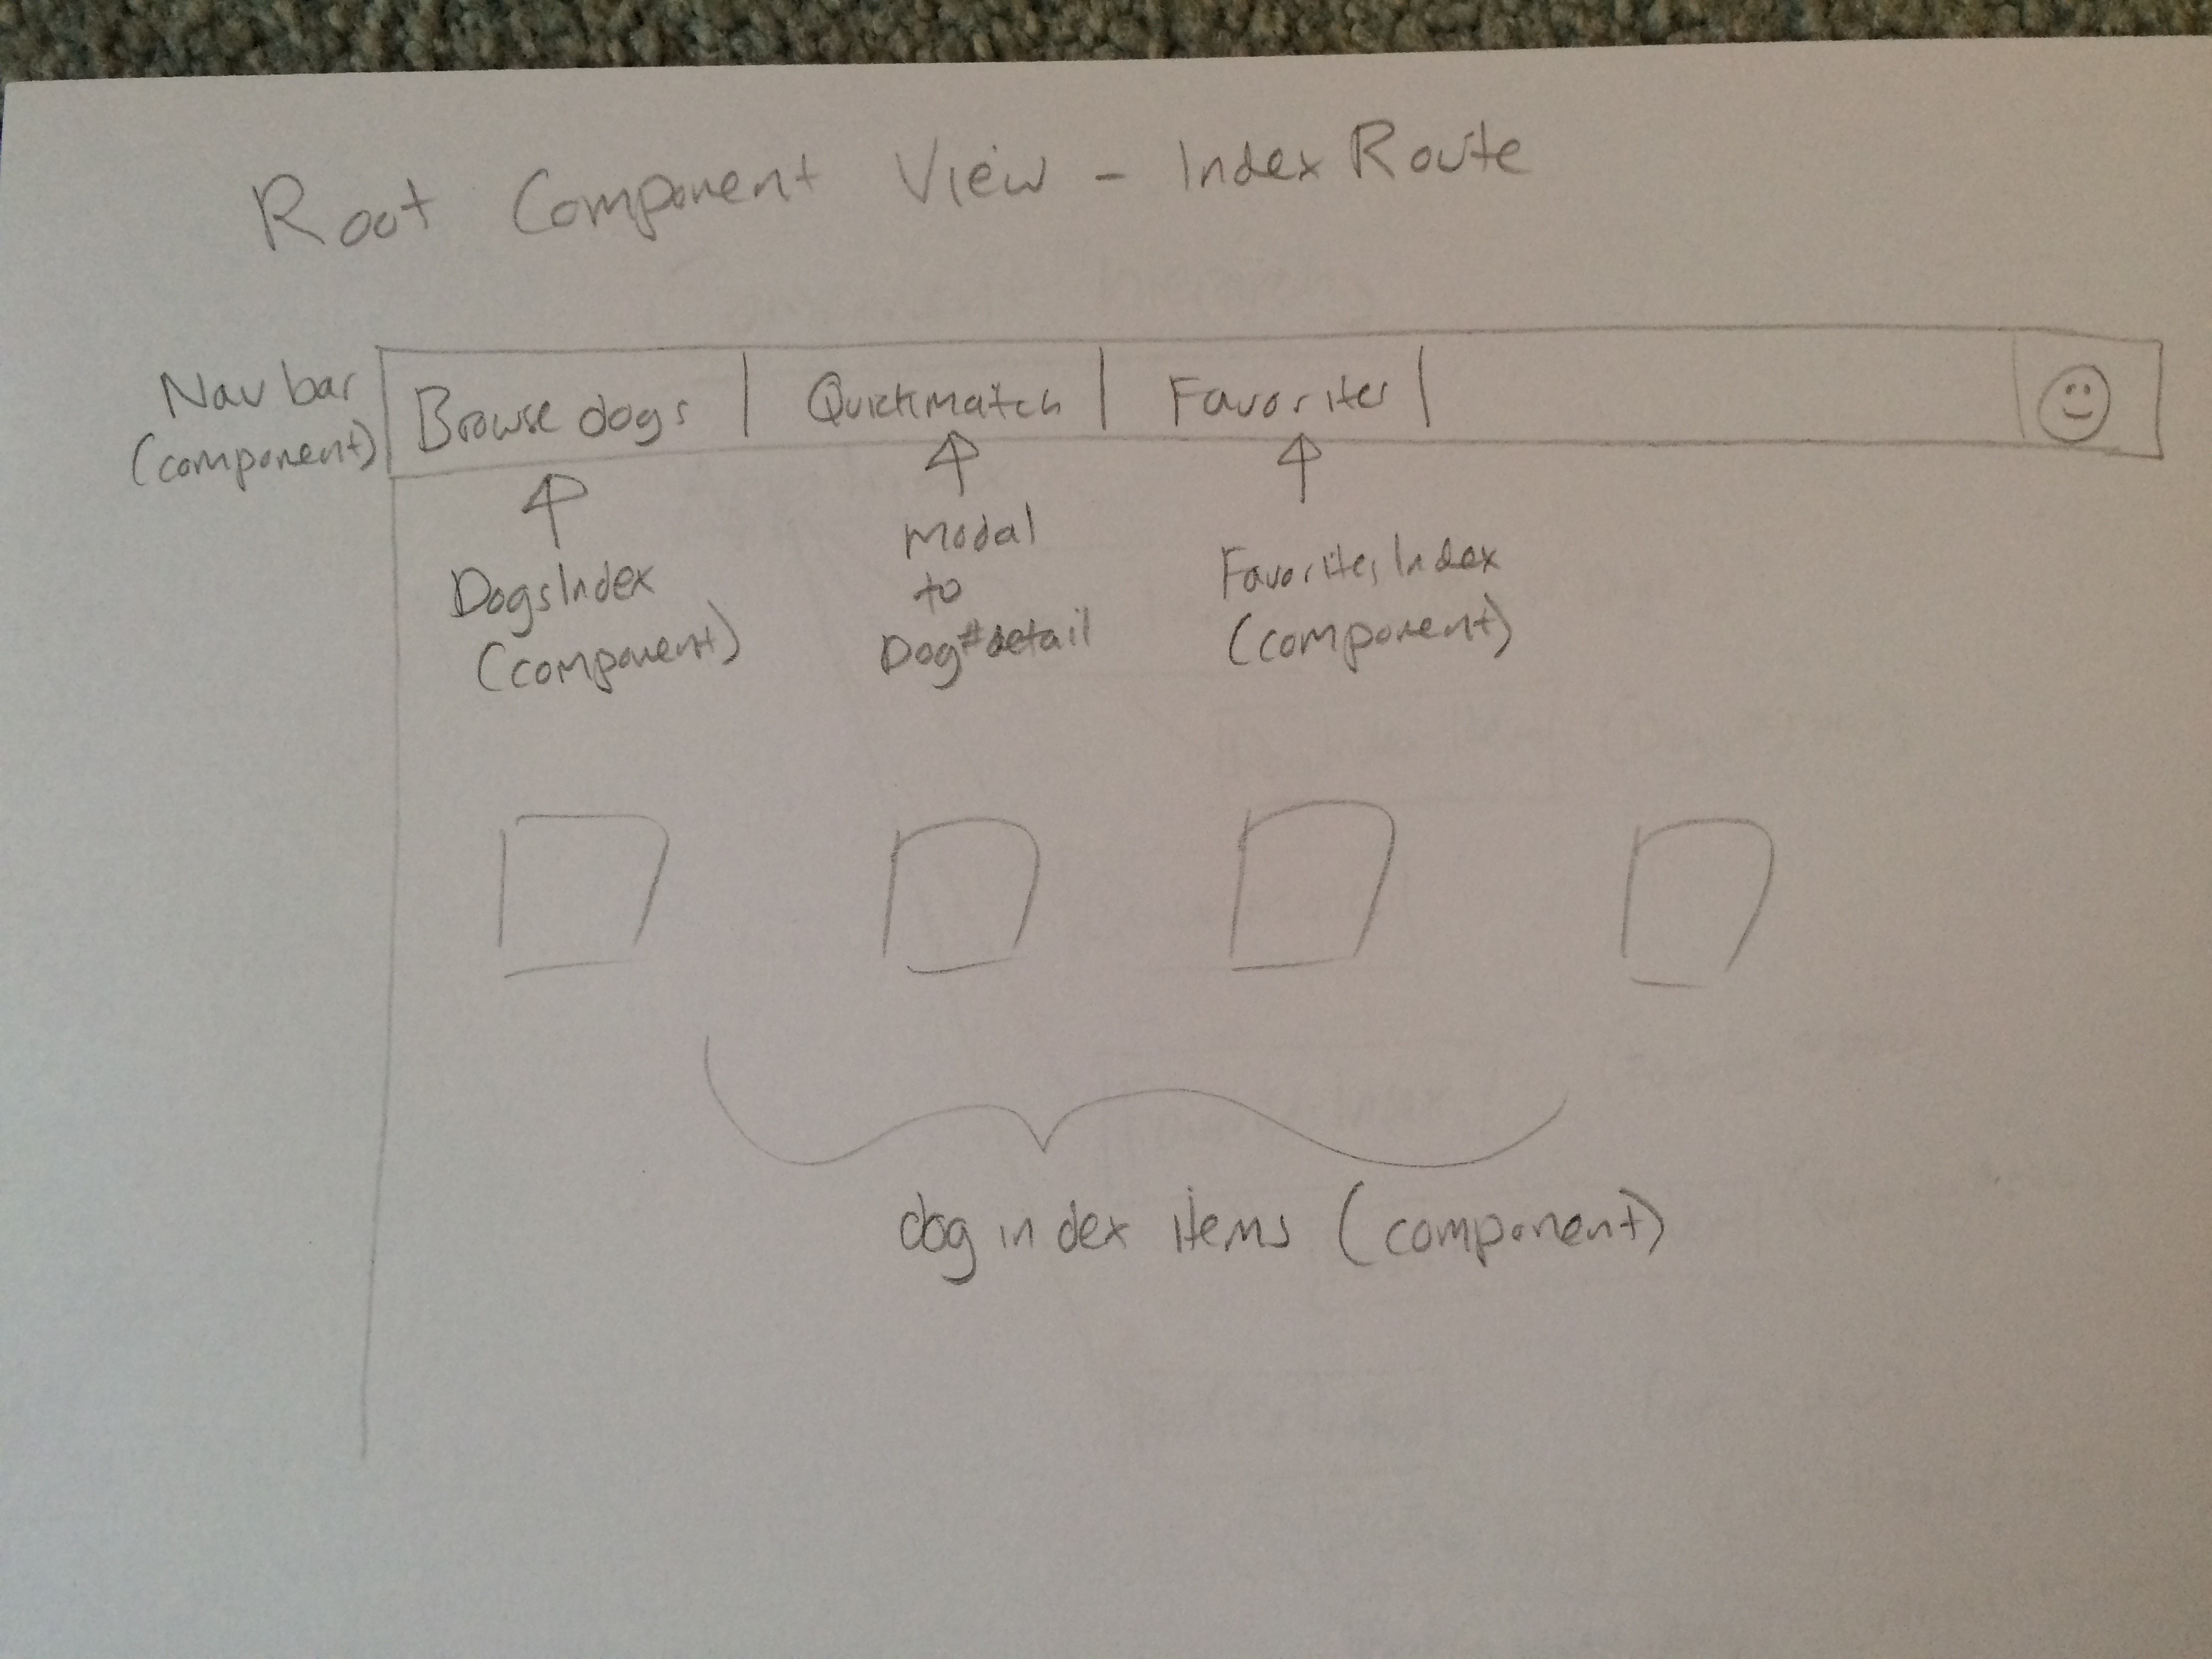 Root Component View - Index Route
Nav bar
(component)
Browse dogs | Quickmatch | Favorites |
DogsIndex
(component)
Modal
to
Dog#detail
FavoritesIndex
(component)
dog index items (component)